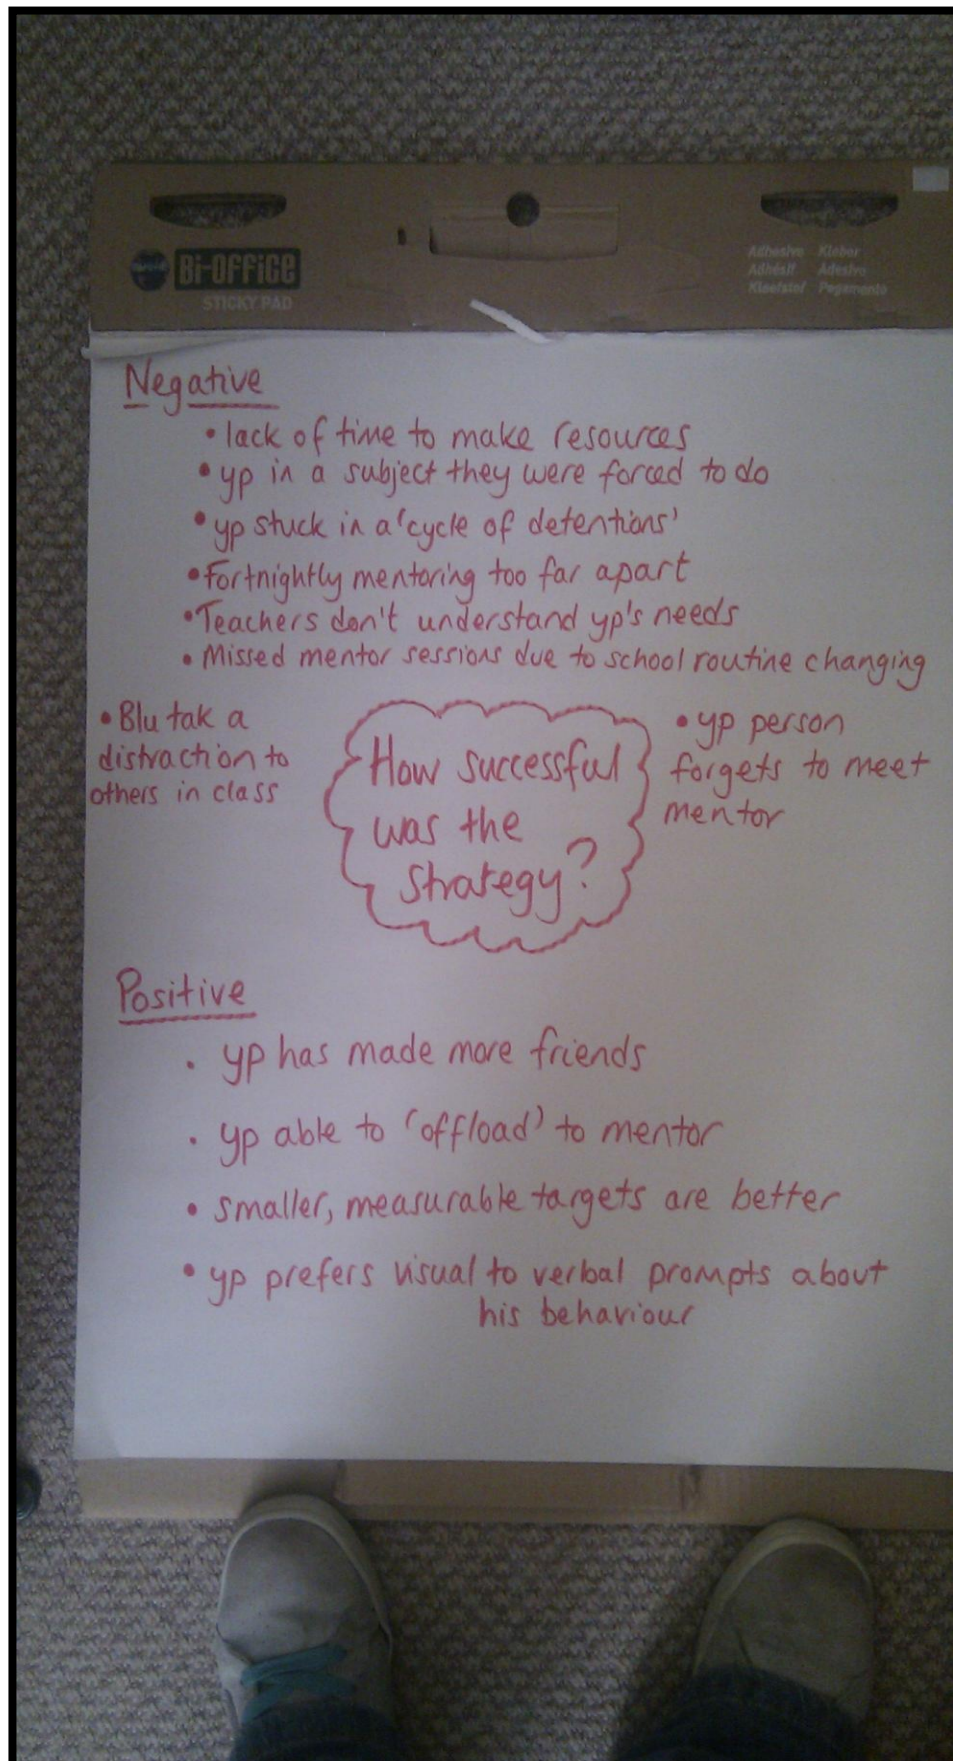 Bi-OFFiCE
STICKY PAD
Adhesive Kleber
Adhésif Adesivo
Kleefstof Pegamento
Negative
• lack of time to make resources
• yp in a subject they were forced to do
• yp stuck in a 'cycle of detentions'
• Fortnightly mentoring too far apart
• Teachers don't understand yp's needs
• Missed mentor sessions due to school routine changing
• Blu tak a
distraction to
others in class
How successful
was the
strategy?
• yp person
forgets to meet
mentor
Positive
• yp has made more friends
• yp able to 'offload' to mentor
• smaller, measurable targets are better
• yp prefers visual to verbal prompts about
his behaviour